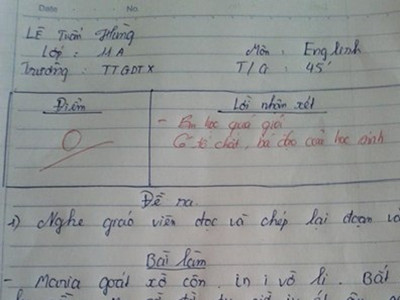 Date No
LÊ Trần Hùng
Lớp : 11A Môn : Englinh
Trường : TTGDTX T/G : 45'
Điểm Lời nhận xét
0 - Em học quá giỏi
Có tố chất, bá đạo của học sinh
Đề ra.
1) Nghe giáo viên đọc và chép lại đoạn vă
Bài làm
- Mania goát xờ côn, in i vô li. Bất